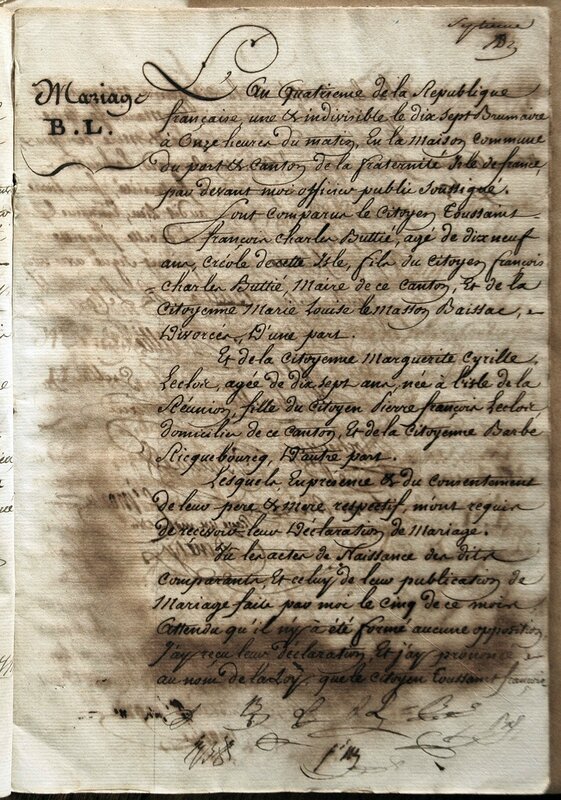 Septieme
Mariage
B. L.
L'An Quatrieme de la Republique
francaise une & indivisible le dix sept Brumaire
à Onze heures du matin, En la Maison Commune
du port & Canton de la fraternité Isle de france
par devant moi officier public Soussigné.
Sont comparus le Citoyen Toussaint
francois Charles Buttié, agé de dix neuf
ans, Créole de cette Isle, fils du Citoyen francois
Charles Buttié, Maire de ce Canton, Et de la
Citoyenne Marie Louise le Masson Baissac,
Divorcés, D'une part.
Et de la Citoyenne Marguerite Cyrille
Lecloir, agée de dix sept ans, née à l'isle de la
Réunion, fille du Citoyen Pierre francois Lecloir,
domicilié de ce Canton, Et de la Citoyenne Barbe
Ricquebourcq, D'autre part.
Lesquels En présence & du consentement
de leur pere & Mere respectif, m'ont requis
de recevoir leur Déclaration de Mariage.
Vu les actes de Naissance des dits
Comparants, Et celuy de leur publication de
Mariage faite par moi le Cinq de ce mois
Attendu qu'il n'y a été formé aucune opposition
J'ay reçu leur déclaration, Et j'ay prononcé
au nom de la Loy, que le Citoyen Toussaint francois